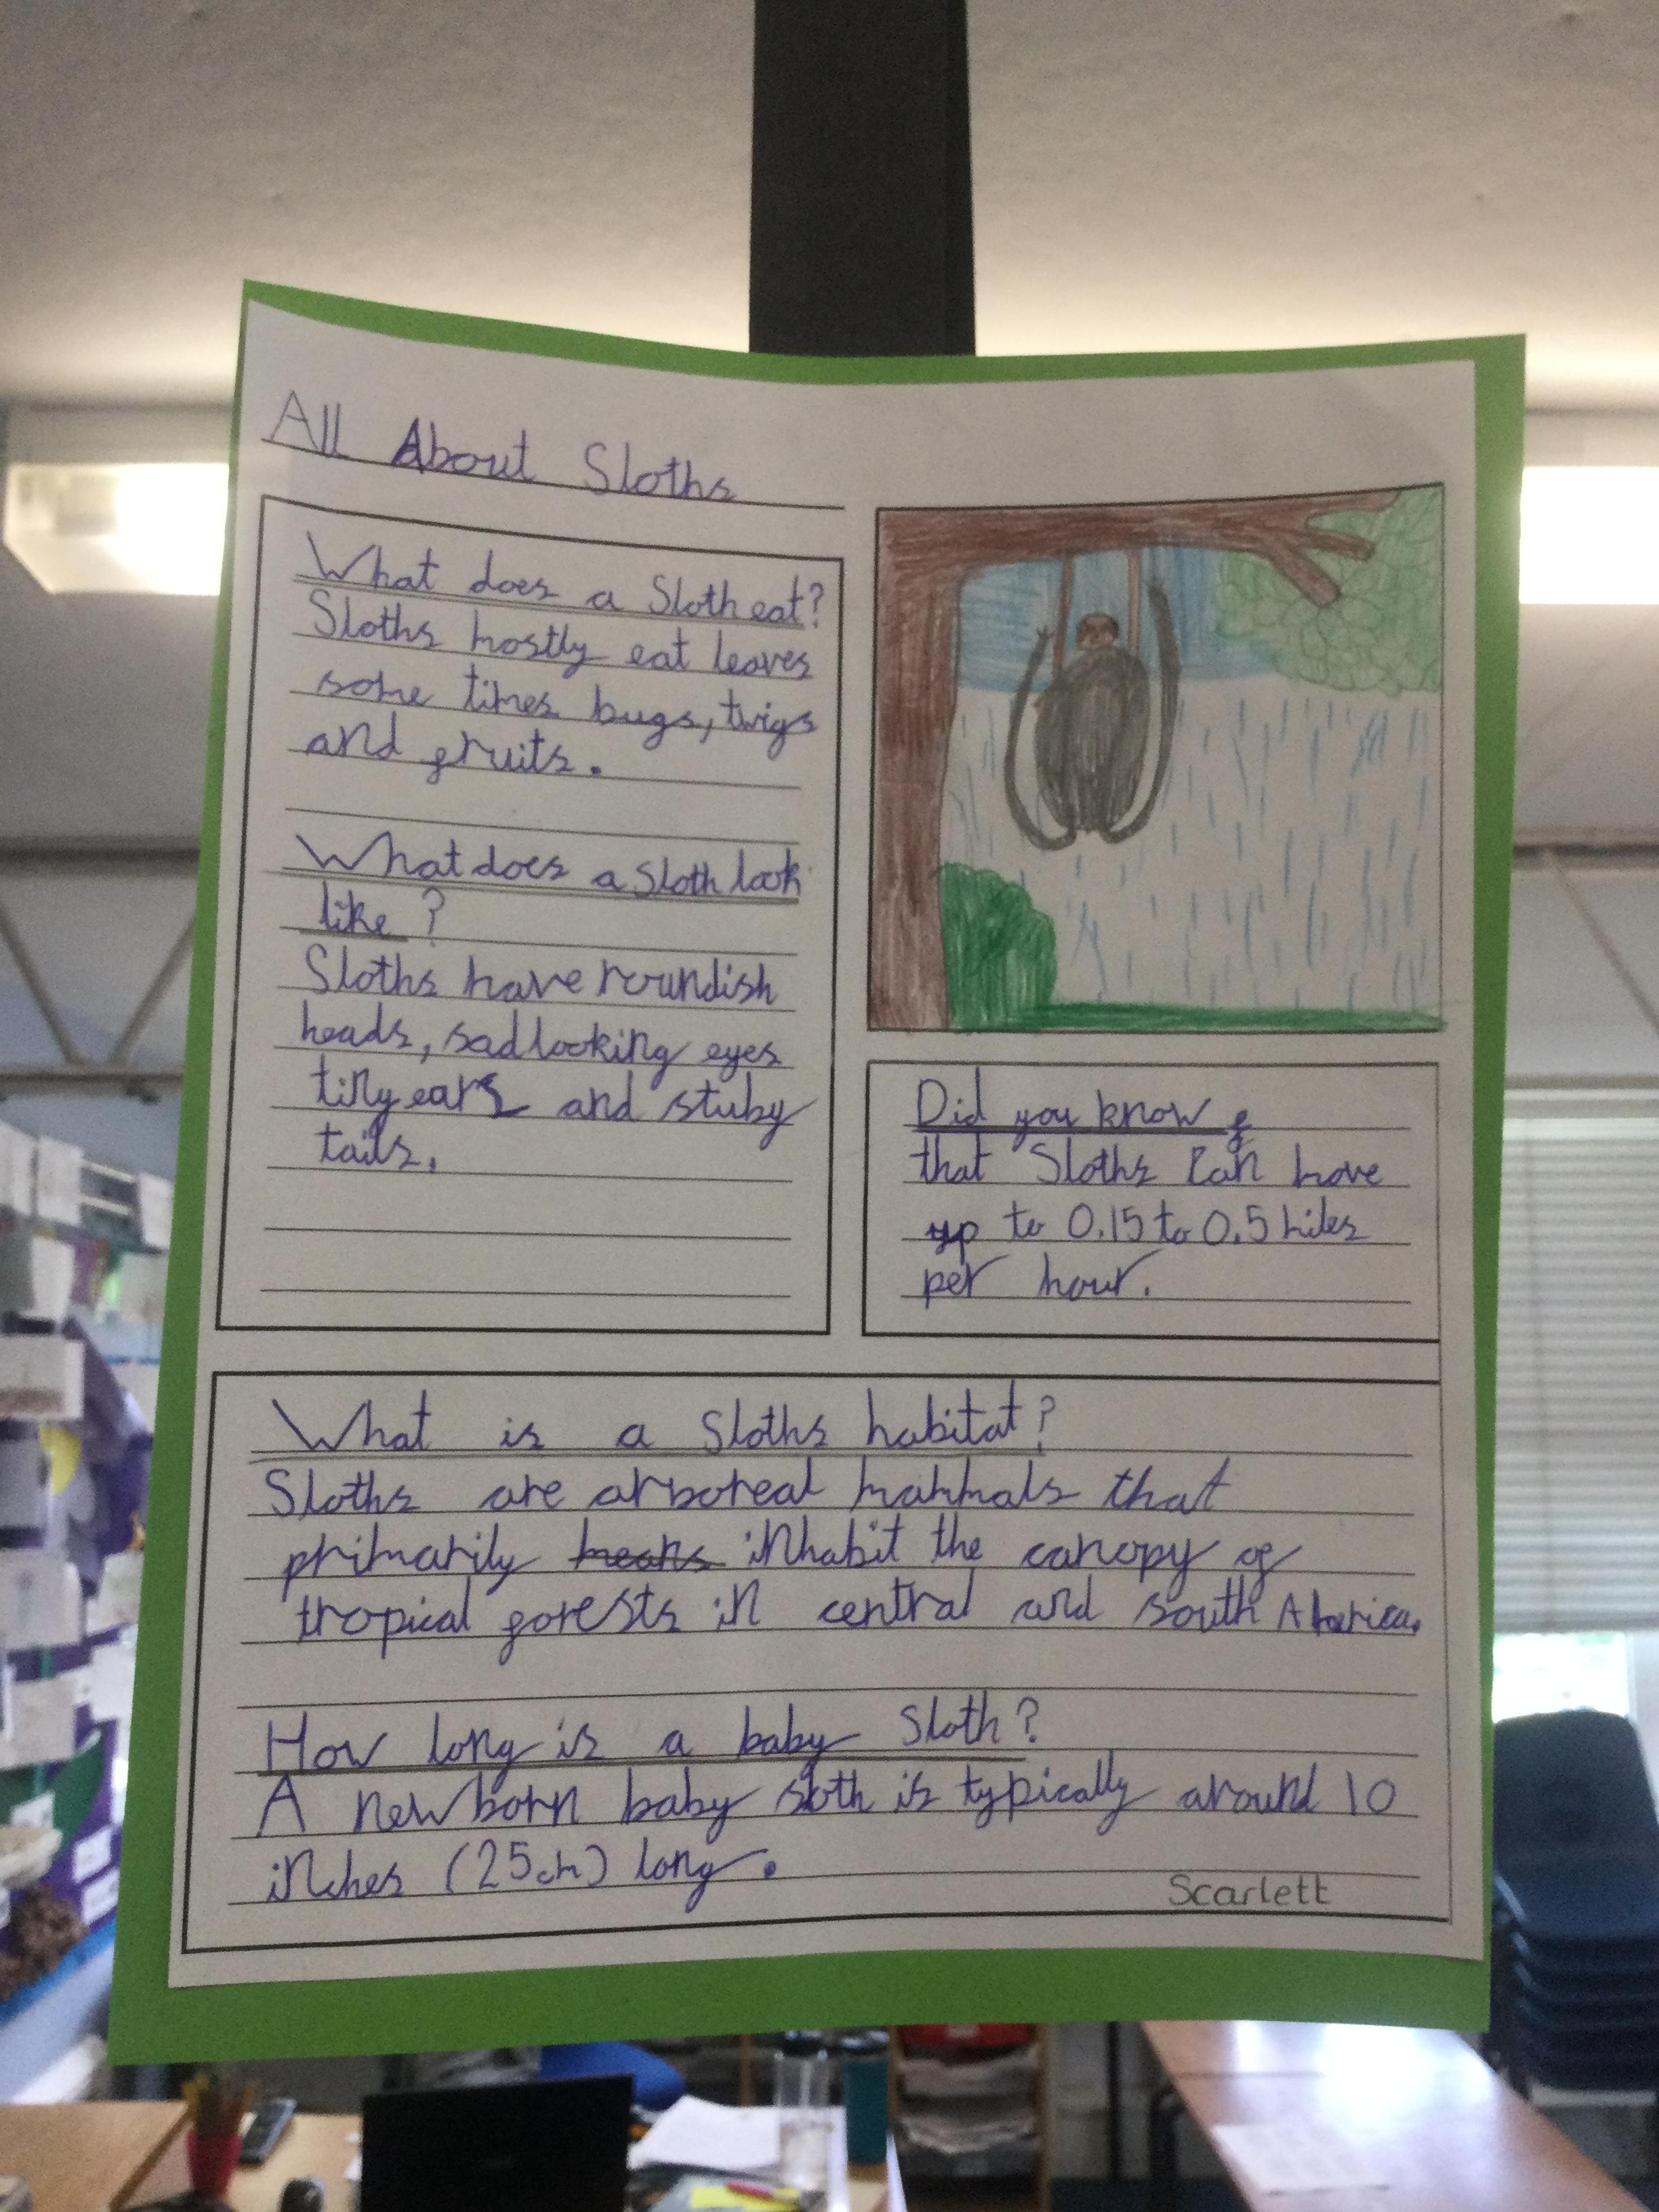 All About Sloths
What does a Sloth eat?
Sloths mostly eat leaves
some times bugs, twigs
and fruits.
What does a Sloth look
like ?
Sloths have roundish
heads, sad looking eyes
tiny ears and stuby
tails.
Did you know
that Sloths can move
up to 0.15 to 0.5 miles
per hour.
What is a Sloths habitat?
Sloths are arboreal mammals that
primarily means inhabit the canopy of
tropical forests in central and south America.
How long is a baby Sloth?
A newborn baby sloth is typically around 10
inches (25cm) long.
Scarlett